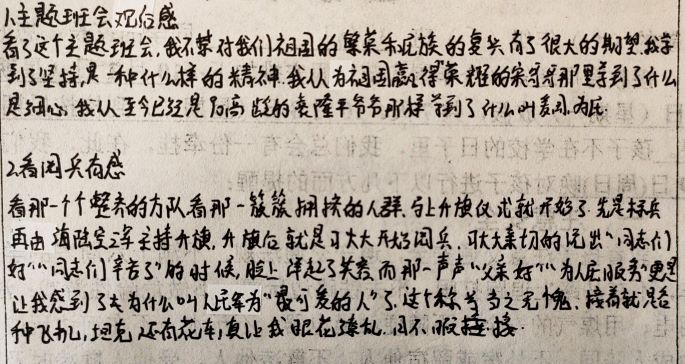 1.主题班会观后感
看了这个主题班会,我不禁对我们祖国的繁荣和民族的复兴有了很大的期望.我学
到了坚持,是一种什么样的精神.我从为祖国赢得荣耀的宋哥哥那里学到了什么
是细心,我从至今已经是高龄的袁隆平爷爷那样学到了什么叫爱国.为民
2.看阅兵有感
看那一个个整齐的方队看那一簇簇拥挤的人群.马上升旗仪式就开始了.先是标兵
再由海陆空三军主持升旗,升旗后就是习大大开始阅兵.习大大亲切的说出"同志们
好""同志们辛苦了"的时候,脸上洋起了笑容而那一声声"父亲好""为人民服务"更是
让我感到了为什么叫人民军为"最可爱的人"了.这个称号当之无愧.接着就是各
种飞机,坦克,还有花车,真让我眼花缭乱.目不暇接.